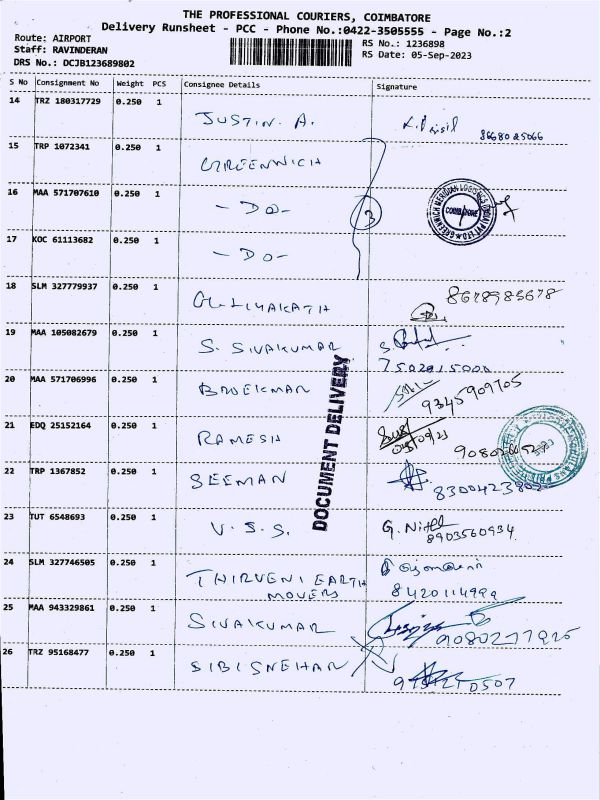 THE PROFESSIONAL COURIERS, COIMBATORE
Delivery Runsheet - PCC - Phone No.:0422-3505555 - Page No.:2
Route: AIRPORT
Staff: RAVINDERAN
DRS No.: DCJB123689802
RS No.: 1236898
RS Date: 05-Sep-2023
S No Consignment No Weight PCS Consignee Details Signature
14 TRZ 180317729 0.250 1 JUSTIN. A. 8668025066
15 TRP 1072341 0.250 1 GREENWICH
16 MAA 571707610 0.250 1 - DO - 3 GREENWICH MERIDIAN LOGISTICS COIMBATORE
17 KOC 61113682 0.250 1 - DO -
18 SLM 327779937 0.250 1 8678985678
19 MAA 105082679 0.250 1 S. SIVAKUMAR
20 MAA 571706996 0.250 1 BROEKMAN 9345909705
21 EDQ 25152164 0.250 1 RAMESH
22 TRP 1367852 0.250 1 SEEMAN
23 TUT 6548693 0.250 1 V. S. S. G. 8903560934
24 SLM 327746505 0.250 1 THIRVENI EARTH
MOVERS
25 MAA 943329861 0.250 1 SIVAKUMAR
26 TRZ 95168477 0.250 1 SIBISNEHAN
DOCUMENT DELIVERY